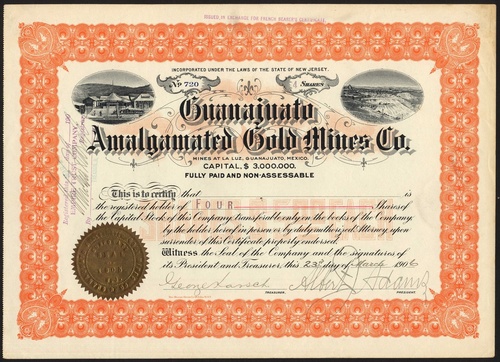 ISSUED IN EXCHANGE FOR FRENCH BEARER'S CERTIFICATE.
INCORPORATED UNDER THE LAWS OF THE STATE OF NEW JERSEY.
No 720
4 SHARES
Guanajuato
Amalgamated Gold Mines Co.
MINES AT LA LUZ, GUANAJUATO, MEXICO.
CAPITAL, $ 3.000.000.
FULLY PAID AND NON-ASSESSABLE
This is to certify that is
the registered holder of FOUR Shares of
the Capital Stock of this Company, transferable only on the books of the Company
by the holder hereof in person or by duly authorized Attorney upon
surrender of this Certificate properly endorsed.
Witness the Seal of the Company and the signatures of
its President and Treasurer, this 23rd day of March 1906
TREASURER.
PRESIDENT.